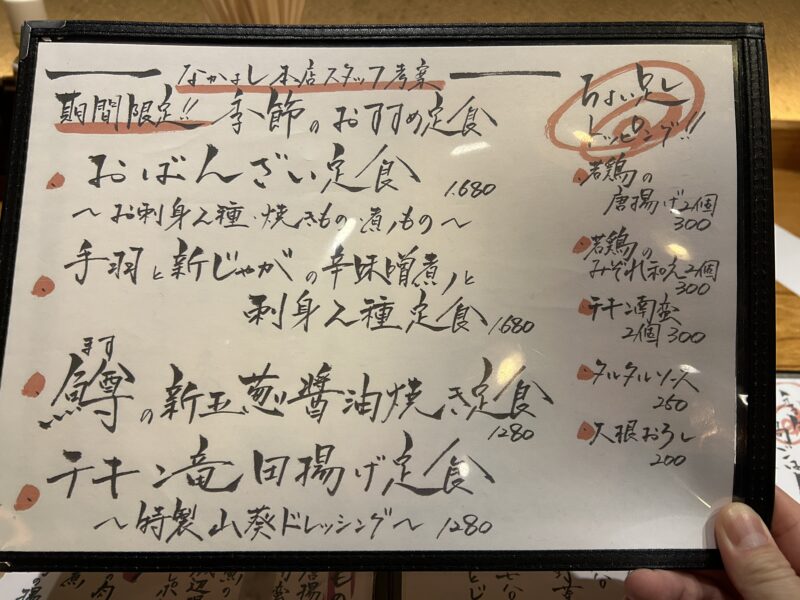 なかよし本店スタッフ考案
期間限定!! 季節のおすすめ定食
おばんざい定食 1.680
〜お刺身2種・焼きもの・煮もの〜
手羽と新じゃがの辛味噌煮と
刺身2種定食 1.680
ます
鱒の新玉葱醤油焼き定食
1280
チキン竜田揚げ定食
〜特製山葵ドレッシング〜 1280
ちょい足し
トッピング!!
若鶏の
唐揚げ2個
300
若鶏の
みぞれ和え2個
300
チキン南蛮
2個 300
タルタルソース
250
大根おろし
200